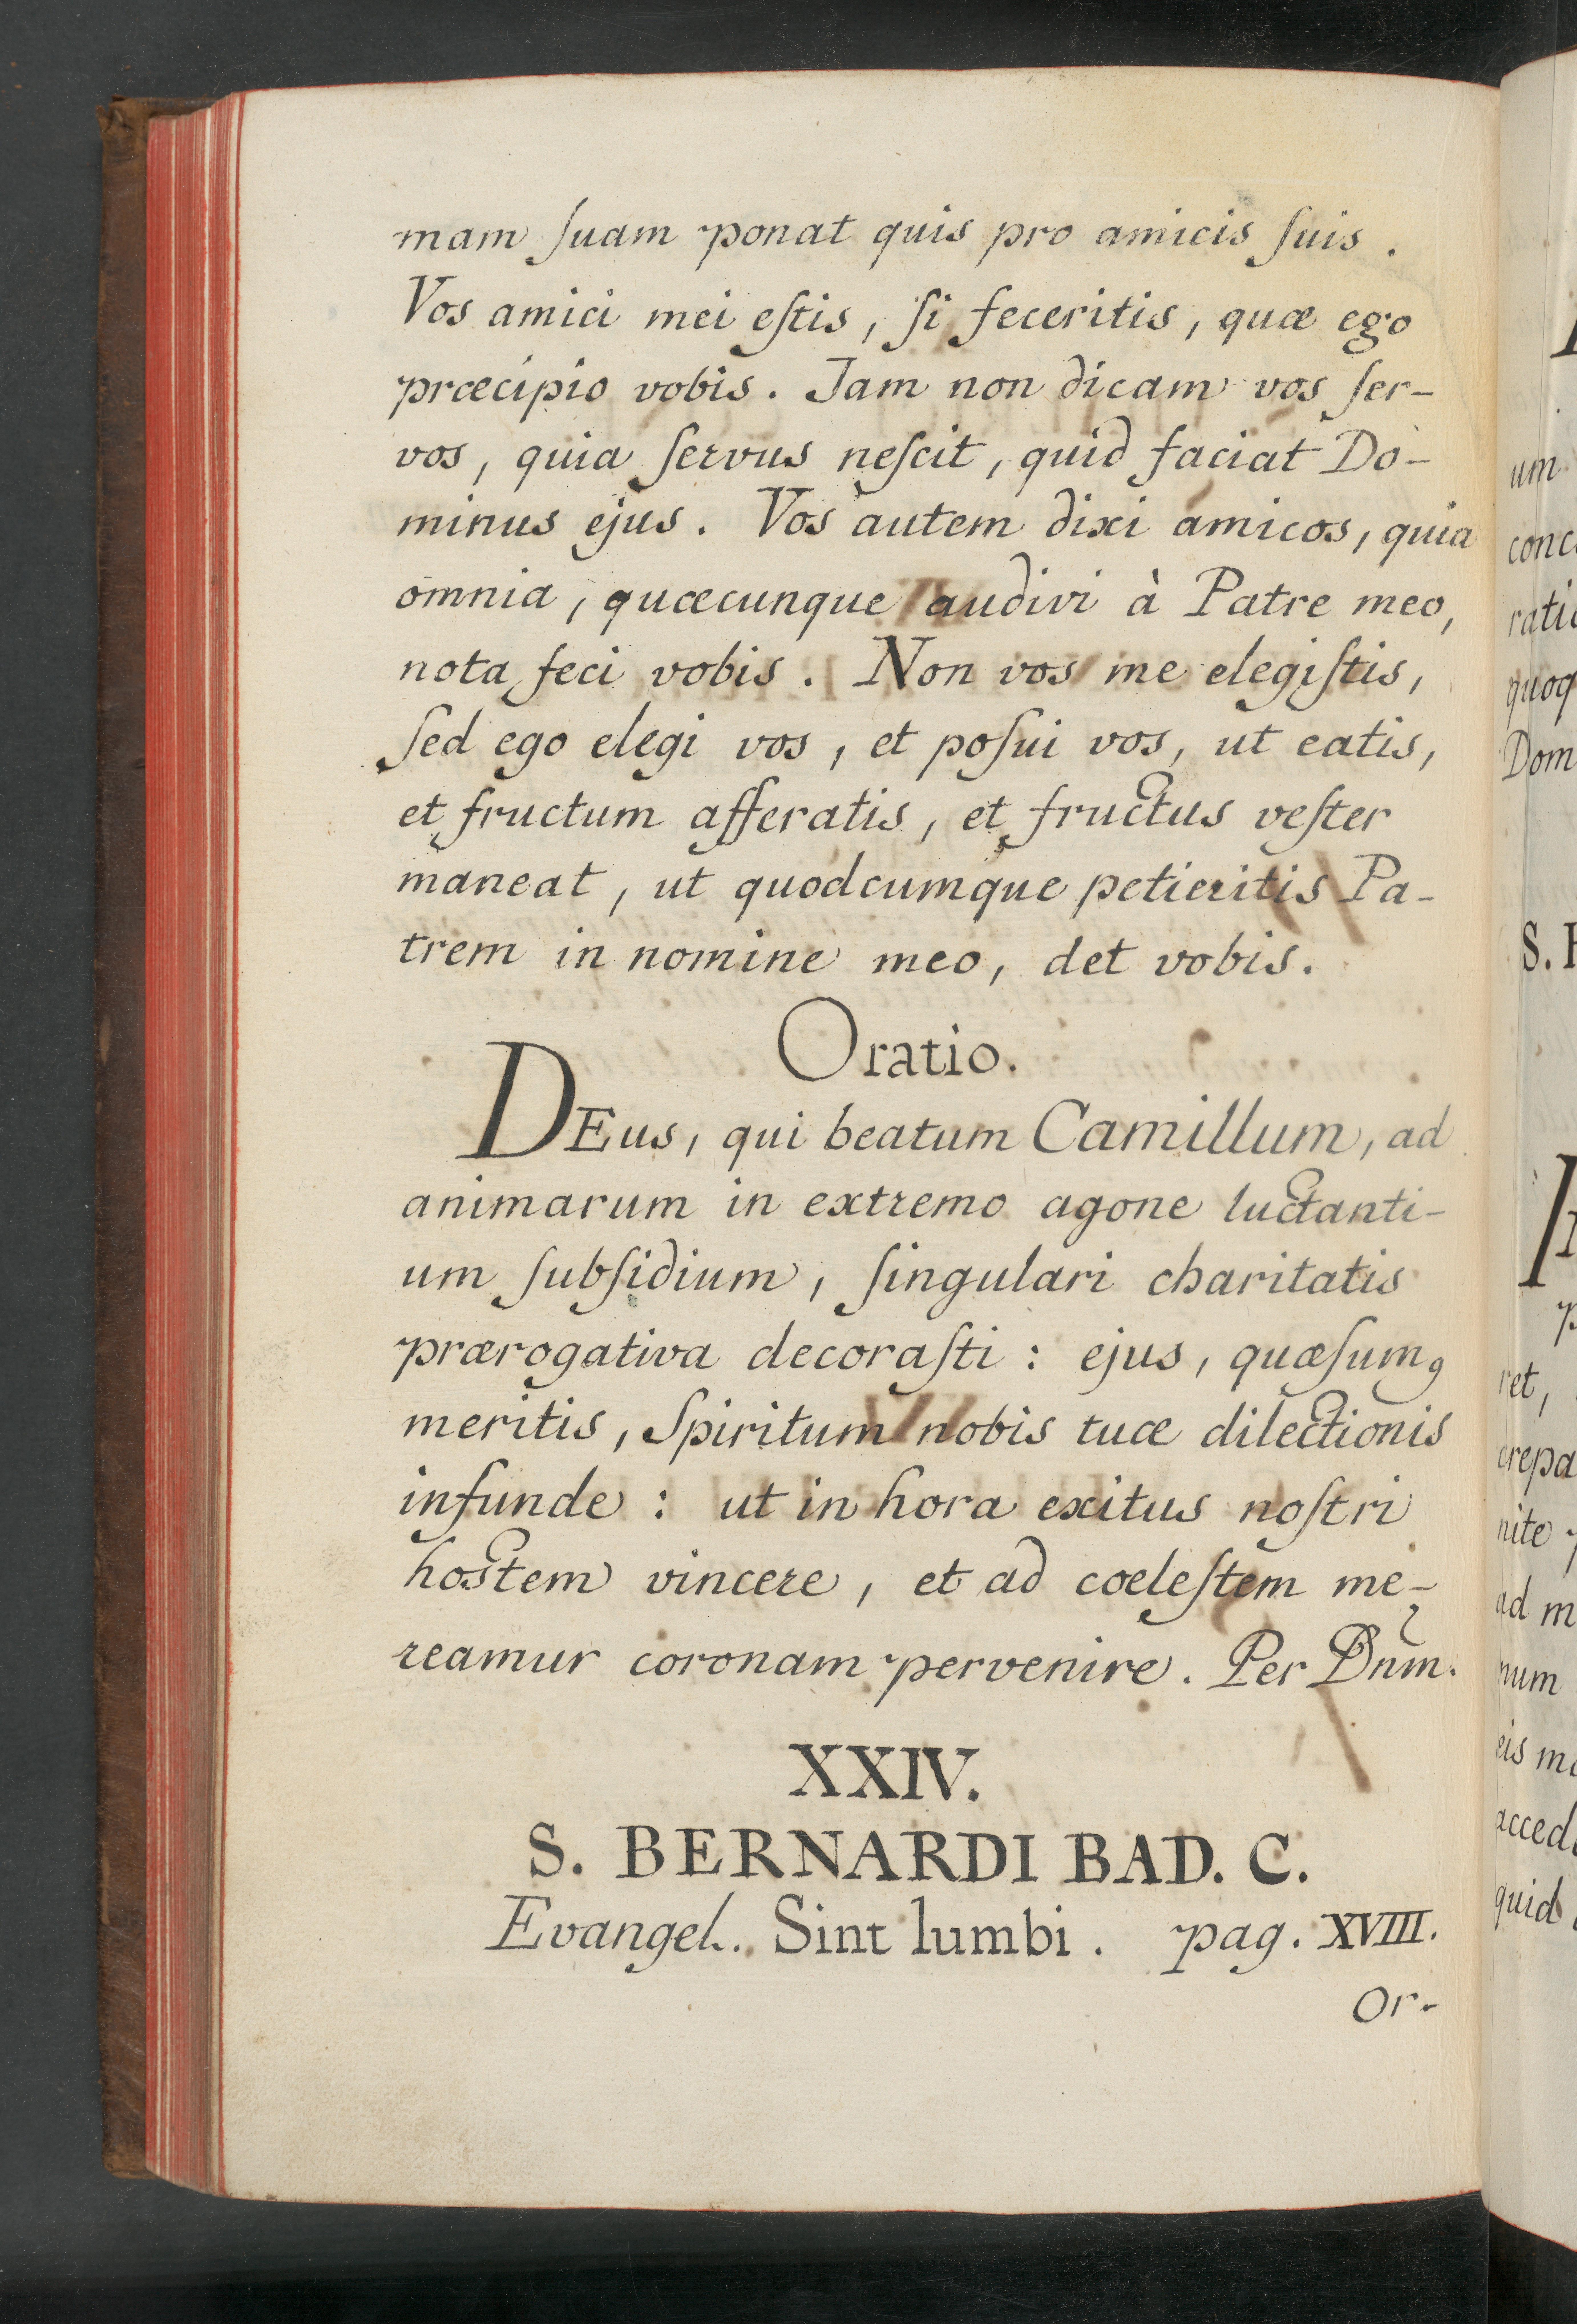 mam ſuam ponat quis pro amicis ſuis.
Vos amici mei eſtis, ſi feceritis, quæ ego
præcipio vobis. Jam non dicam vos ſer-
vos, quia ſervus neſcit, quid faciat Do-
minus ejus. Vos autem dixi amicos, quia
omnia, quæcunque audivi à Patre meo,
nota feci vobis. Non vos me elegiſtis,
ſed ego elegi vos, et poſui vos, ut eatis,
et fructum afferatis, et fructus veſter
maneat, ut quodcumque petieritis Pa-
trem in nomine meo, det vobis.
Oratio.
DEus, qui beatum Camillum, ad
animarum in extremo agone luctanti-
um ſubſidium, ſingulari charitatis
prærogativa decoraſti: ejus, quæſumꝰ
meritis, Spiritum nobis tuæ dilectionis
infunde: ut in hora exitus noſtri
hostem vincere, et ad coeleſtem me-
reamur coronam pervenire. Per Dñm.
XXIV.
S. BERNARDI BAD. C.
Evangel. Sint lumbi. pag. XVIII.
Or-
um
conc
ratio
quoq
Dom
S.
p
ret,
crepa
nite
ad m
num
eis m
acced
quid